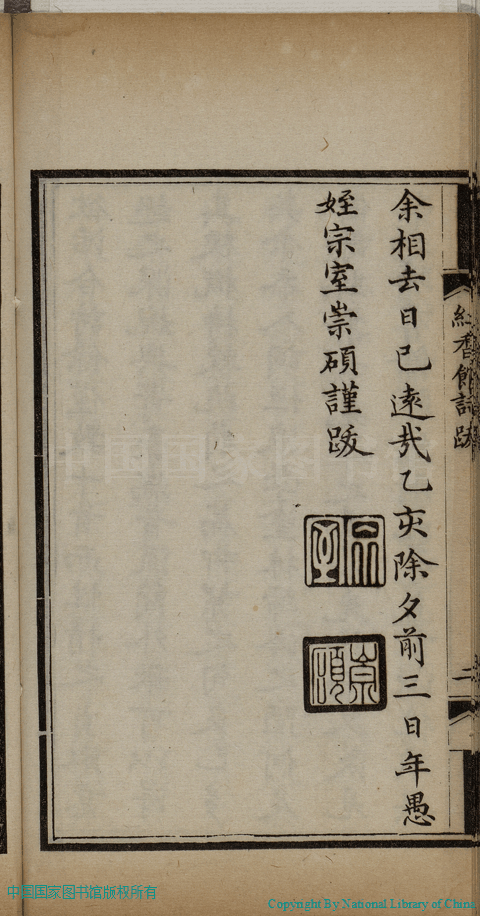 余相去日已遠哉乙亥除夕前三日年愚
姪宗室崇碩謹跋
宗室
崇碩
紅香館詩跋
二
中国国家图书馆
中国国家图书馆版权所有
Copyright By National Library of China